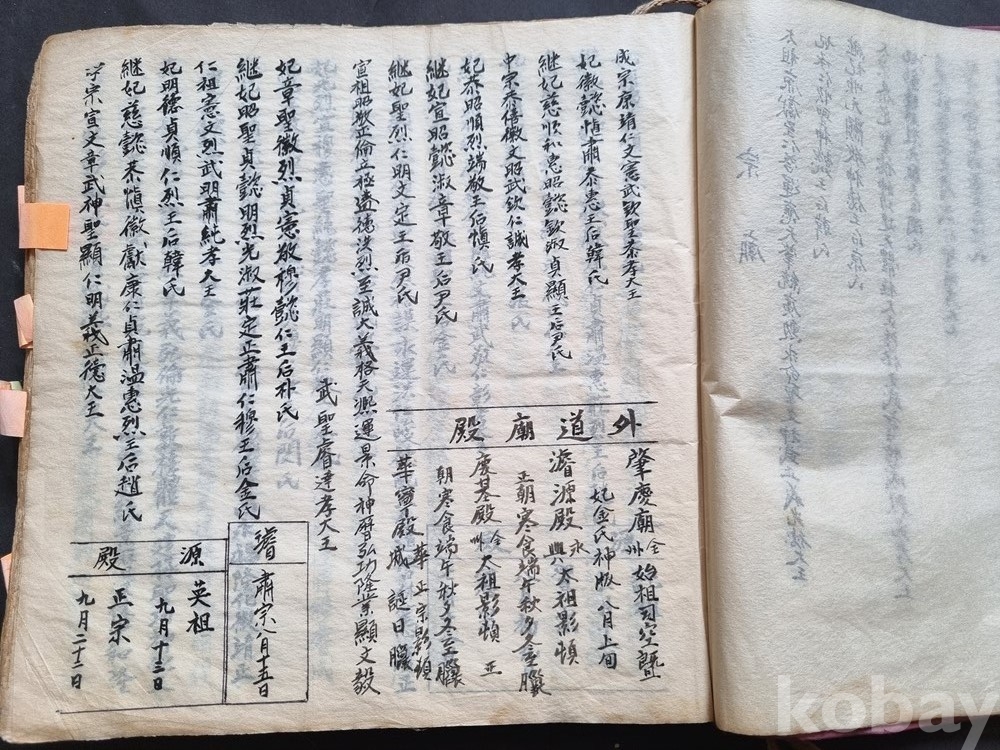 成宗康靖仁文憲武欽聖恭孝大王
妃徽懿愼肅恭惠王后韓氏
継妃慈順和惠昭懿欽淑貞顯王后尹氏
中宗恭僖徽文昭武欽仁誠孝大王
妃恭昭順烈端敬王后愼氏
継妃宣昭懿淑章敬王后尹氏
継妃聖烈仁明文定王后尹氏
宣祖昭敬正倫立極盛德洪烈至誠大義格天熙運景命神曆弘功隆業顯文毅
武聖睿達孝大王
妃章聖徽烈貞憲敬穆懿仁王后朴氏
継妃昭聖貞懿明烈光淑莊定正肅仁穆王后金氏
仁祖憲文烈武明肅純孝大王
妃明德貞順仁烈王后韓氏
継妃慈懿恭愼徽獻康仁貞肅温憲烈王后趙氏
孝宗宣文章武神聖顯仁明義正德大王
外道廟殿
肇慶廟 全州 始祖司空曁
妃金氏神版 八月上旬
濬源殿 永興 太祖影幀
正朝寒食端午秋夕冬至臘
慶基殿 全州 太祖影幀 正
朝寒食端午秋夕冬至臘
華寧殿 華城 正宗影幀
誕日臘
璿源殿
肅宗八月十五日
英祖
九月十三日
正宗
九月二十二日
kobay